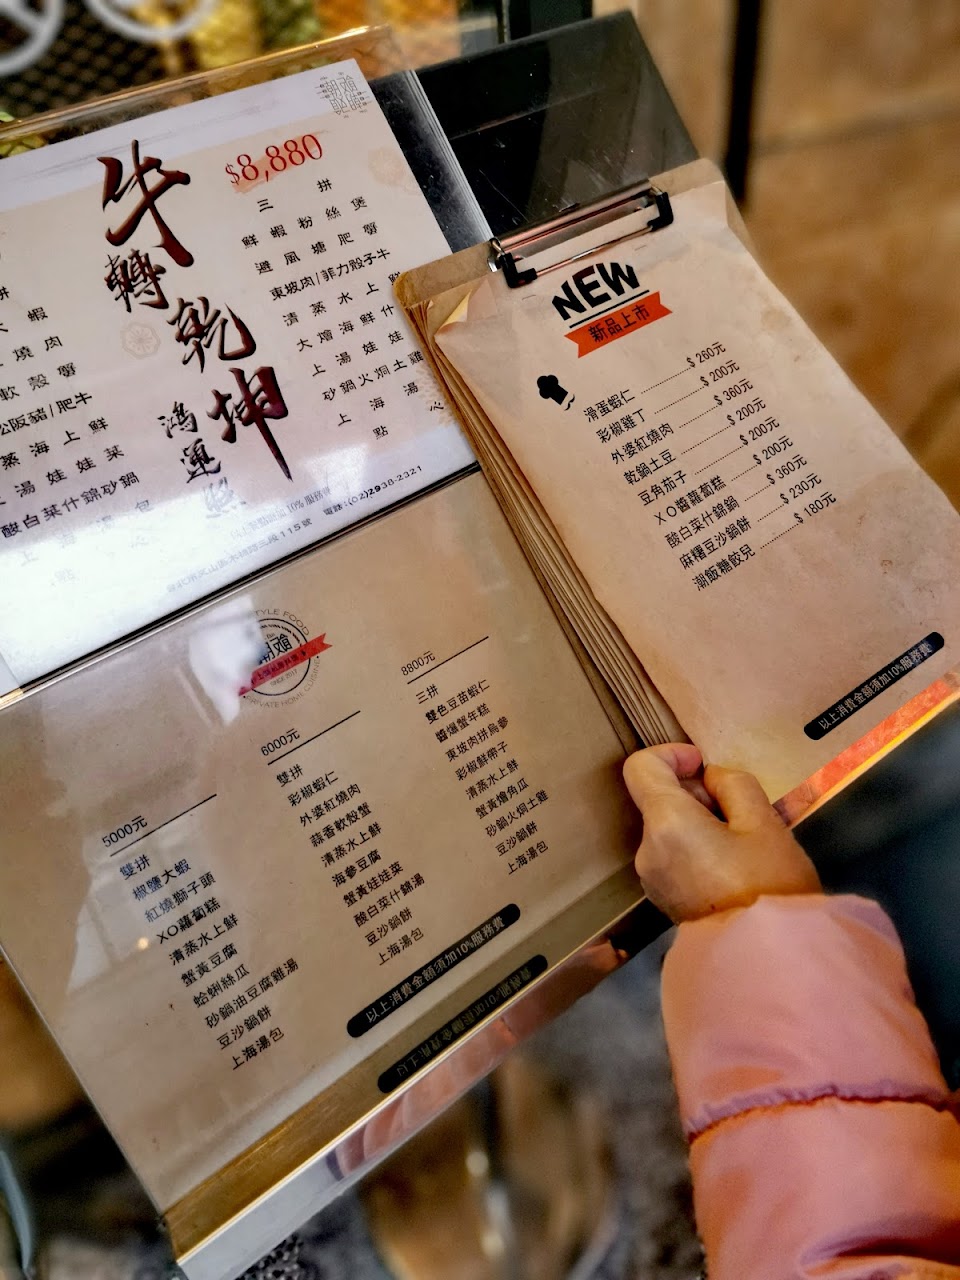 牛轉乾坤
鴻運
$8,880
三拼
鮮蝦粉絲煲
避風塘肥蟹
東坡肉/菲力骰子牛
清蒸水上鮮
大燴海鮮什
上湯娃娃
砂鍋火焗土雞
上海湯
點心
蝦
燒肉
軟殼蟹
松阪豬/肥牛
蒸海上鮮
湯娃娃菜
酸白菜什錦砂鍋
上海湯包
10%服務費
115號 電話:(02)2938-2321
STYLE FOOD
SINCE 2017
PRIVATE HOME CUISINE
5000元
雙拼
椒鹽大蝦
紅燒獅子頭
XO蘿蔔糕
清蒸水上鮮
蟹黃豆腐
蛤蜊絲瓜
砂鍋油豆腐雞湯
豆沙鍋餅
上海湯包
6000元
雙拼
彩椒蝦仁
外婆紅燒肉
蒜香軟殼蟹
清蒸水上鮮
海參豆腐
蟹黃娃娃菜
酸白菜什錦湯
豆沙鍋餅
上海湯包
8800元
三拼
雙色豆苗蝦仁
醬爆蟹年糕
東坡肉拼烏參
彩椒鮮帶子
清蒸水上鮮
蟹黃燴角瓜
砂鍋火焗土雞
豆沙鍋餅
上海湯包
以上消費金額須加10%服務費
NEW
新品上市
滑蛋蝦仁 $260元
彩椒雞丁 $200元
外婆紅燒肉 $360元
乾鍋土豆 $200元
豆角茄子 $200元
XO醬蘿蔔糕 $200元
酸白菜什錦鍋 $360元
麻糬豆沙鍋餅 $230元
潮飯糖餃兒 $180元
以上消費金額須加10%服務費